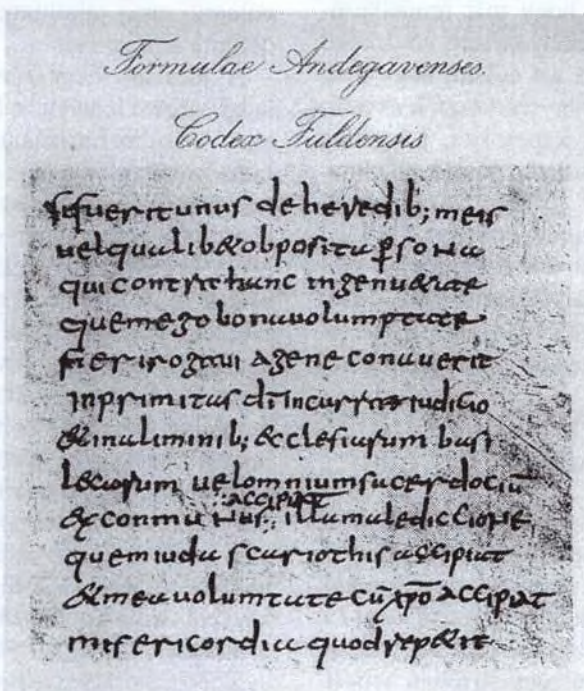 Formulae Andegavenses.
Codex Fuldensis
fuerit unus de heredib; meis
uel qualib& obposita p̱sona
qui contra hanc ingenu&ate
quem ego bona uolumptate
fieri rogaui agene conauerit
inprimitus dī incurrat iudicio
& in aliminib; &clesiarum basi
uel omnium sacerdociū
accipiat
illa malediccione
quem iuda scariothis accipiat
& mea uolumtate cū xp̄o accipiat
misericordia quod rep&it